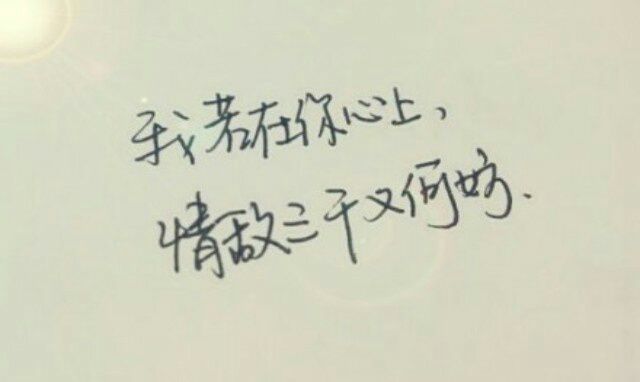 我若在你心上，
情敌三千又何妨.